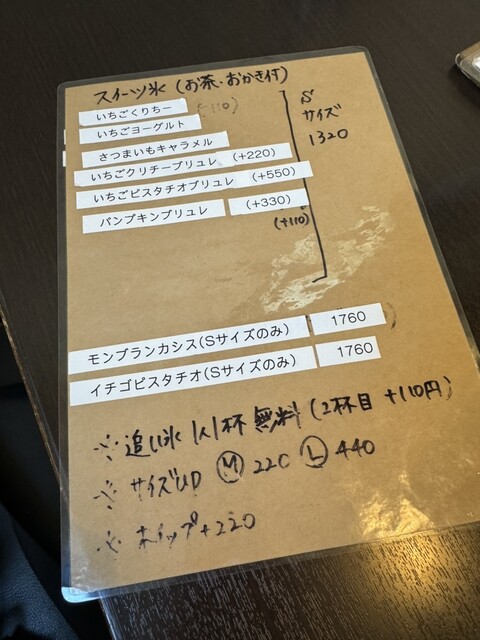 スイーツ氷 (お茶・おかき付)
いちごくりちー
いちごヨーグルト
さつまいもキャラメル
いちごクリチーブリュレ (+220)
いちごピスタチオブリュレ (+550)
パンプキンブリュレ (+330)
(+110)
Sサイズ
1320
モンブランカシス(Sサイズのみ) 1760
イチゴピスタチオ(Sサイズのみ) 1760
※ 追い氷 1人1杯 無料 (2杯目 +110円)
※ サイズUP Ⓜ 220 Ⓛ 440
※ ホイップ+220